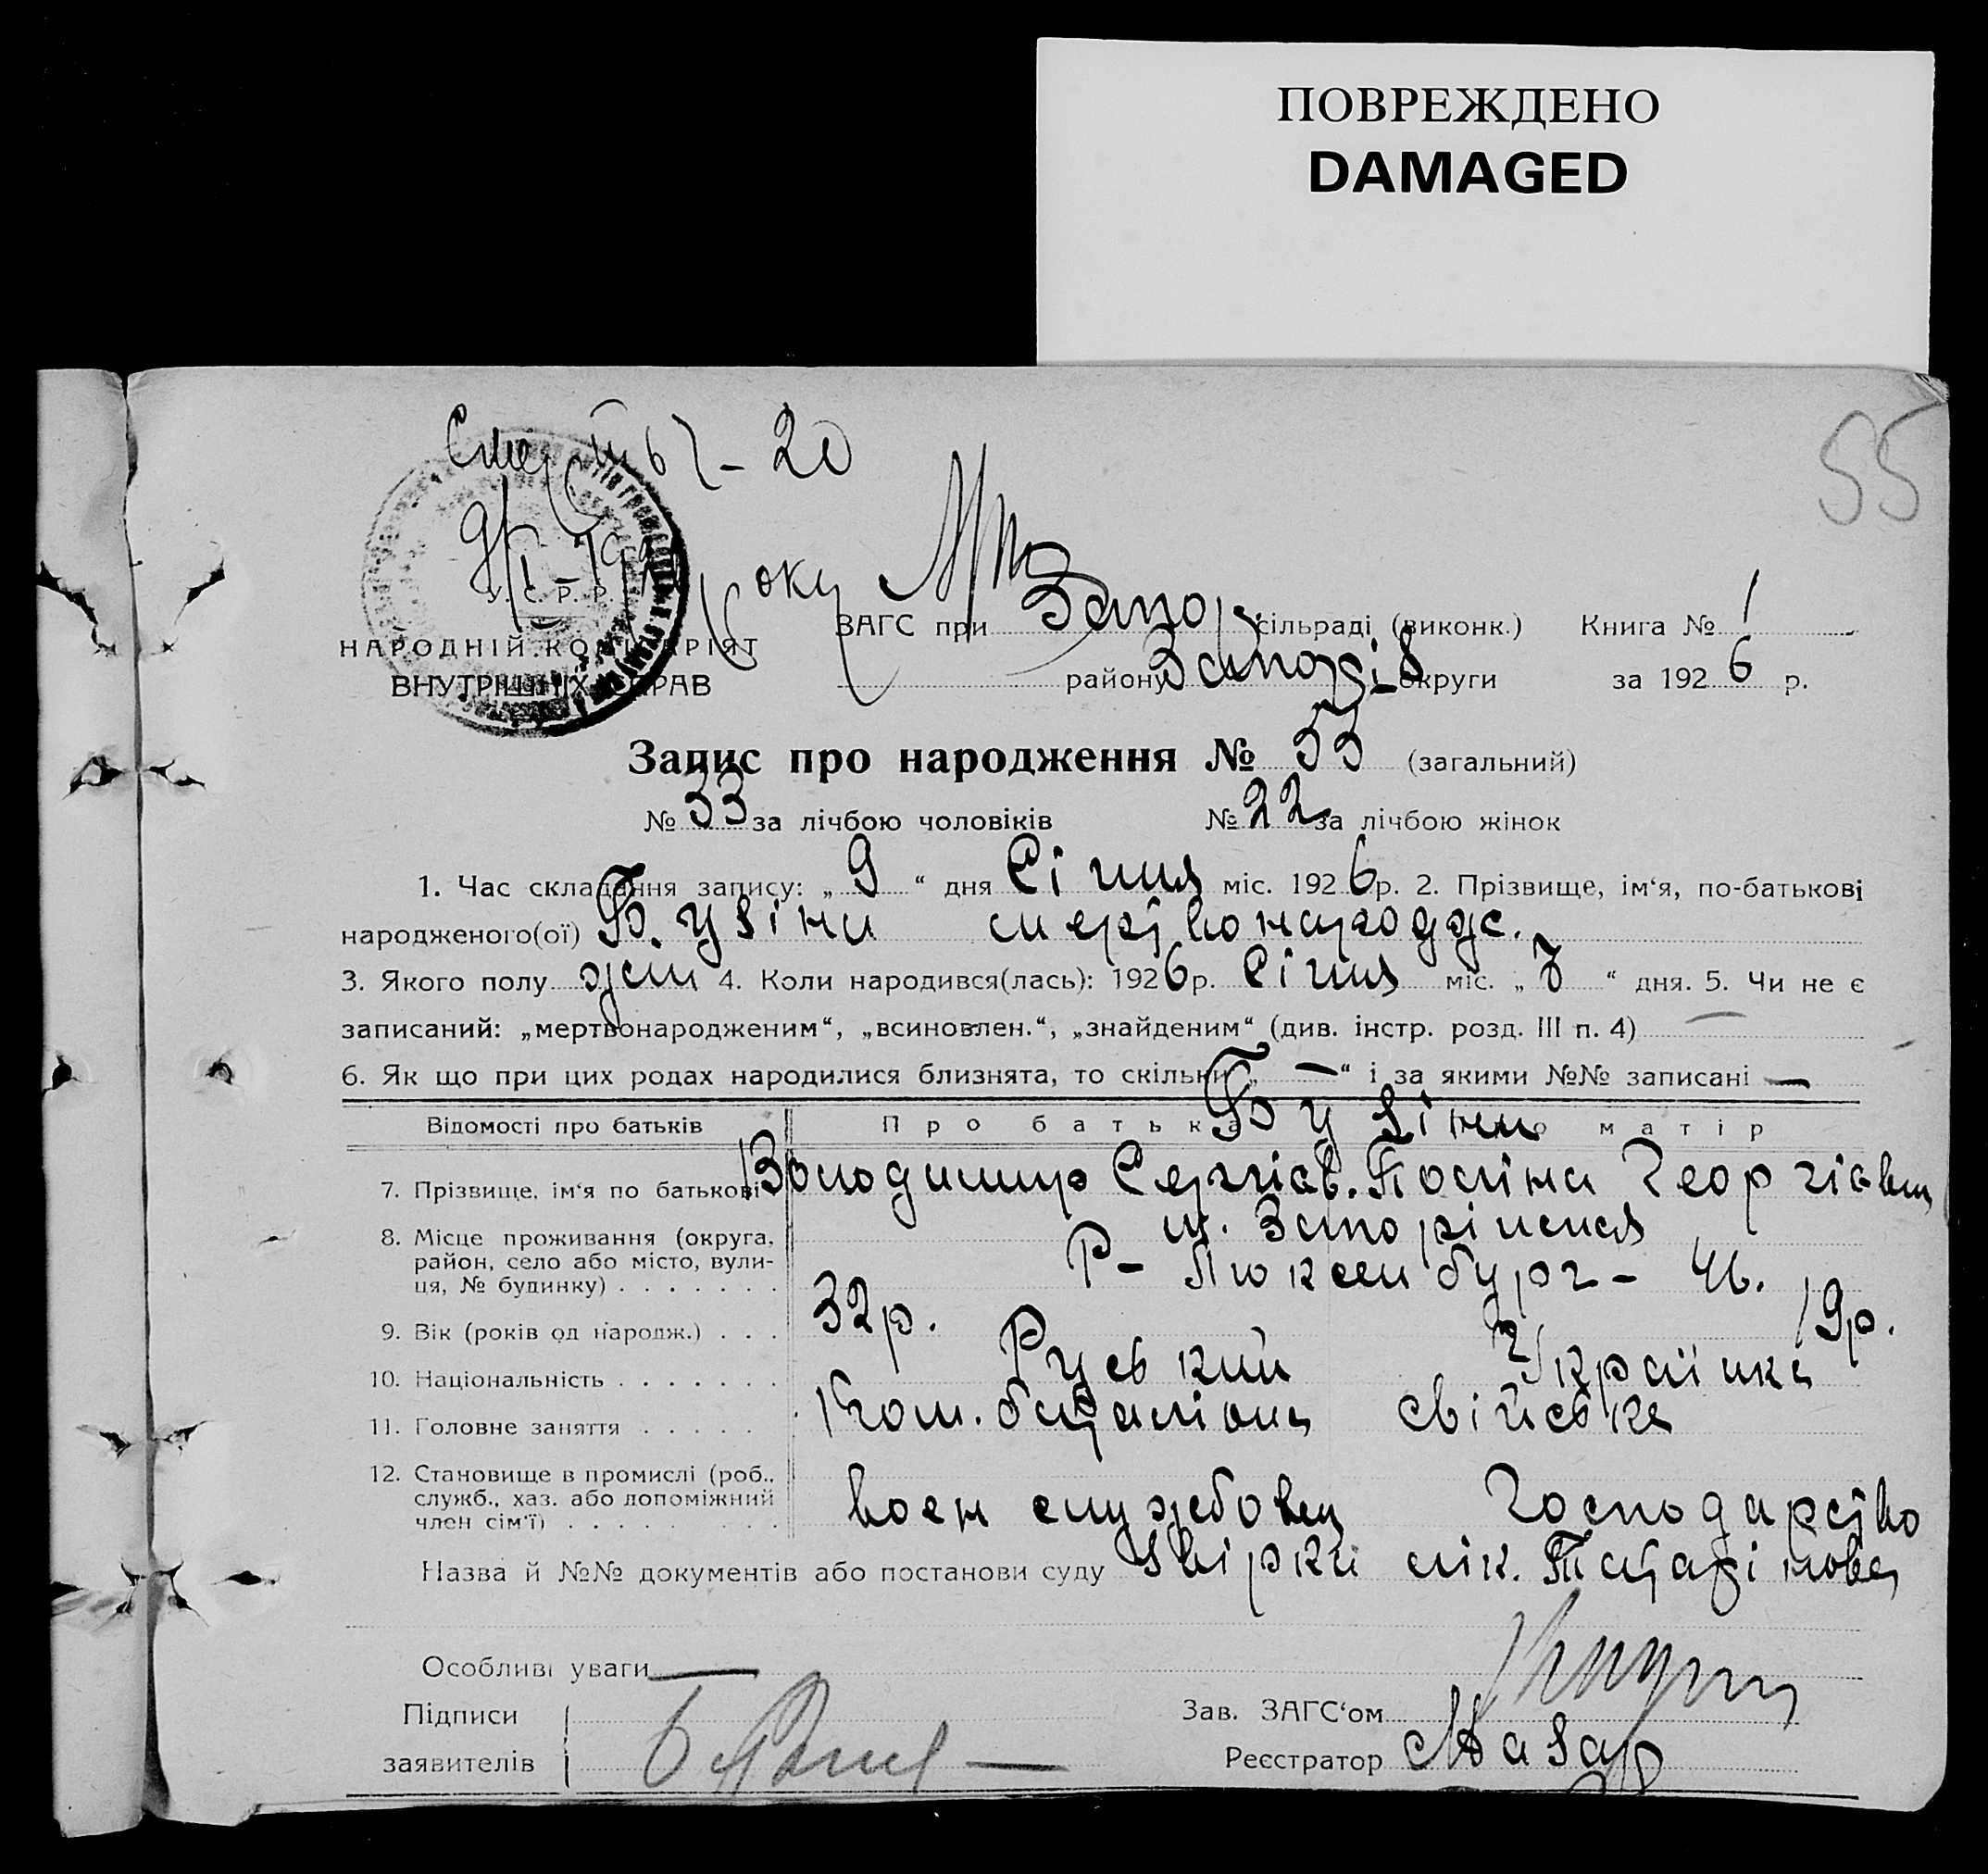 ПОВРЕЖДЕНО
DAMAGED
55
Смерть - 20
9/I - року
У. С. Р. Р.
НАРОДНІЙ КОМІСАРІЯТ
ВНУТРІШНІХ СПРАВ
ЗАГС при Запор. сільраді (виконк.) Книга № 1
району Запоріз округи за 1926 р.
Запис про народження № 55 (загальний)
№ 33 за лічбою чоловіків № 22 за лічбою жінок
1. Час складання запису: „ 9 “ дня Січня міс. 1926 р. 2. Прізвище, ім‘я, по-батькові
народженого(ої) Бузіна мертвонародж.
3. Якого полу жін 4. Коли народився(лась): 1926 р. Січня міс. „ 7 “ дня. 5. Чи не є
записаний: „мертвонародженим“, „всиновлен.“, „знайденим“ (див. інстр. розд. III п. 4) —
6. Як що при цих родах народилися близнята, то скільки „ — “ і за якими №№ записані —
Відомості про батьків Про батька Про матір
Бузіни
7. Прізвище, ім‘я по батькові Володимир Сергіев. Поліна Георгіевна
8. Місце проживання (округа, район, село або місто, вулиця, № будинку) м. Запоріжжя
Р- Люксенбург- 46.
9. Вік (років од народж.) 32 р. 19 р.
10. Національність Руський Українка
11. Головне заняття Ком. баталіона свійське
12. Становище в промислі (роб., служб., хаз. або допоміжний член сім‘ї) воен службовец господарство
Назва й №№ документів або постанови суду звірки лік. Татарінова
Особливі уваги —
Підписи
заявителів
Зав. ЗАГС‘ом
Реєстратор Мазар